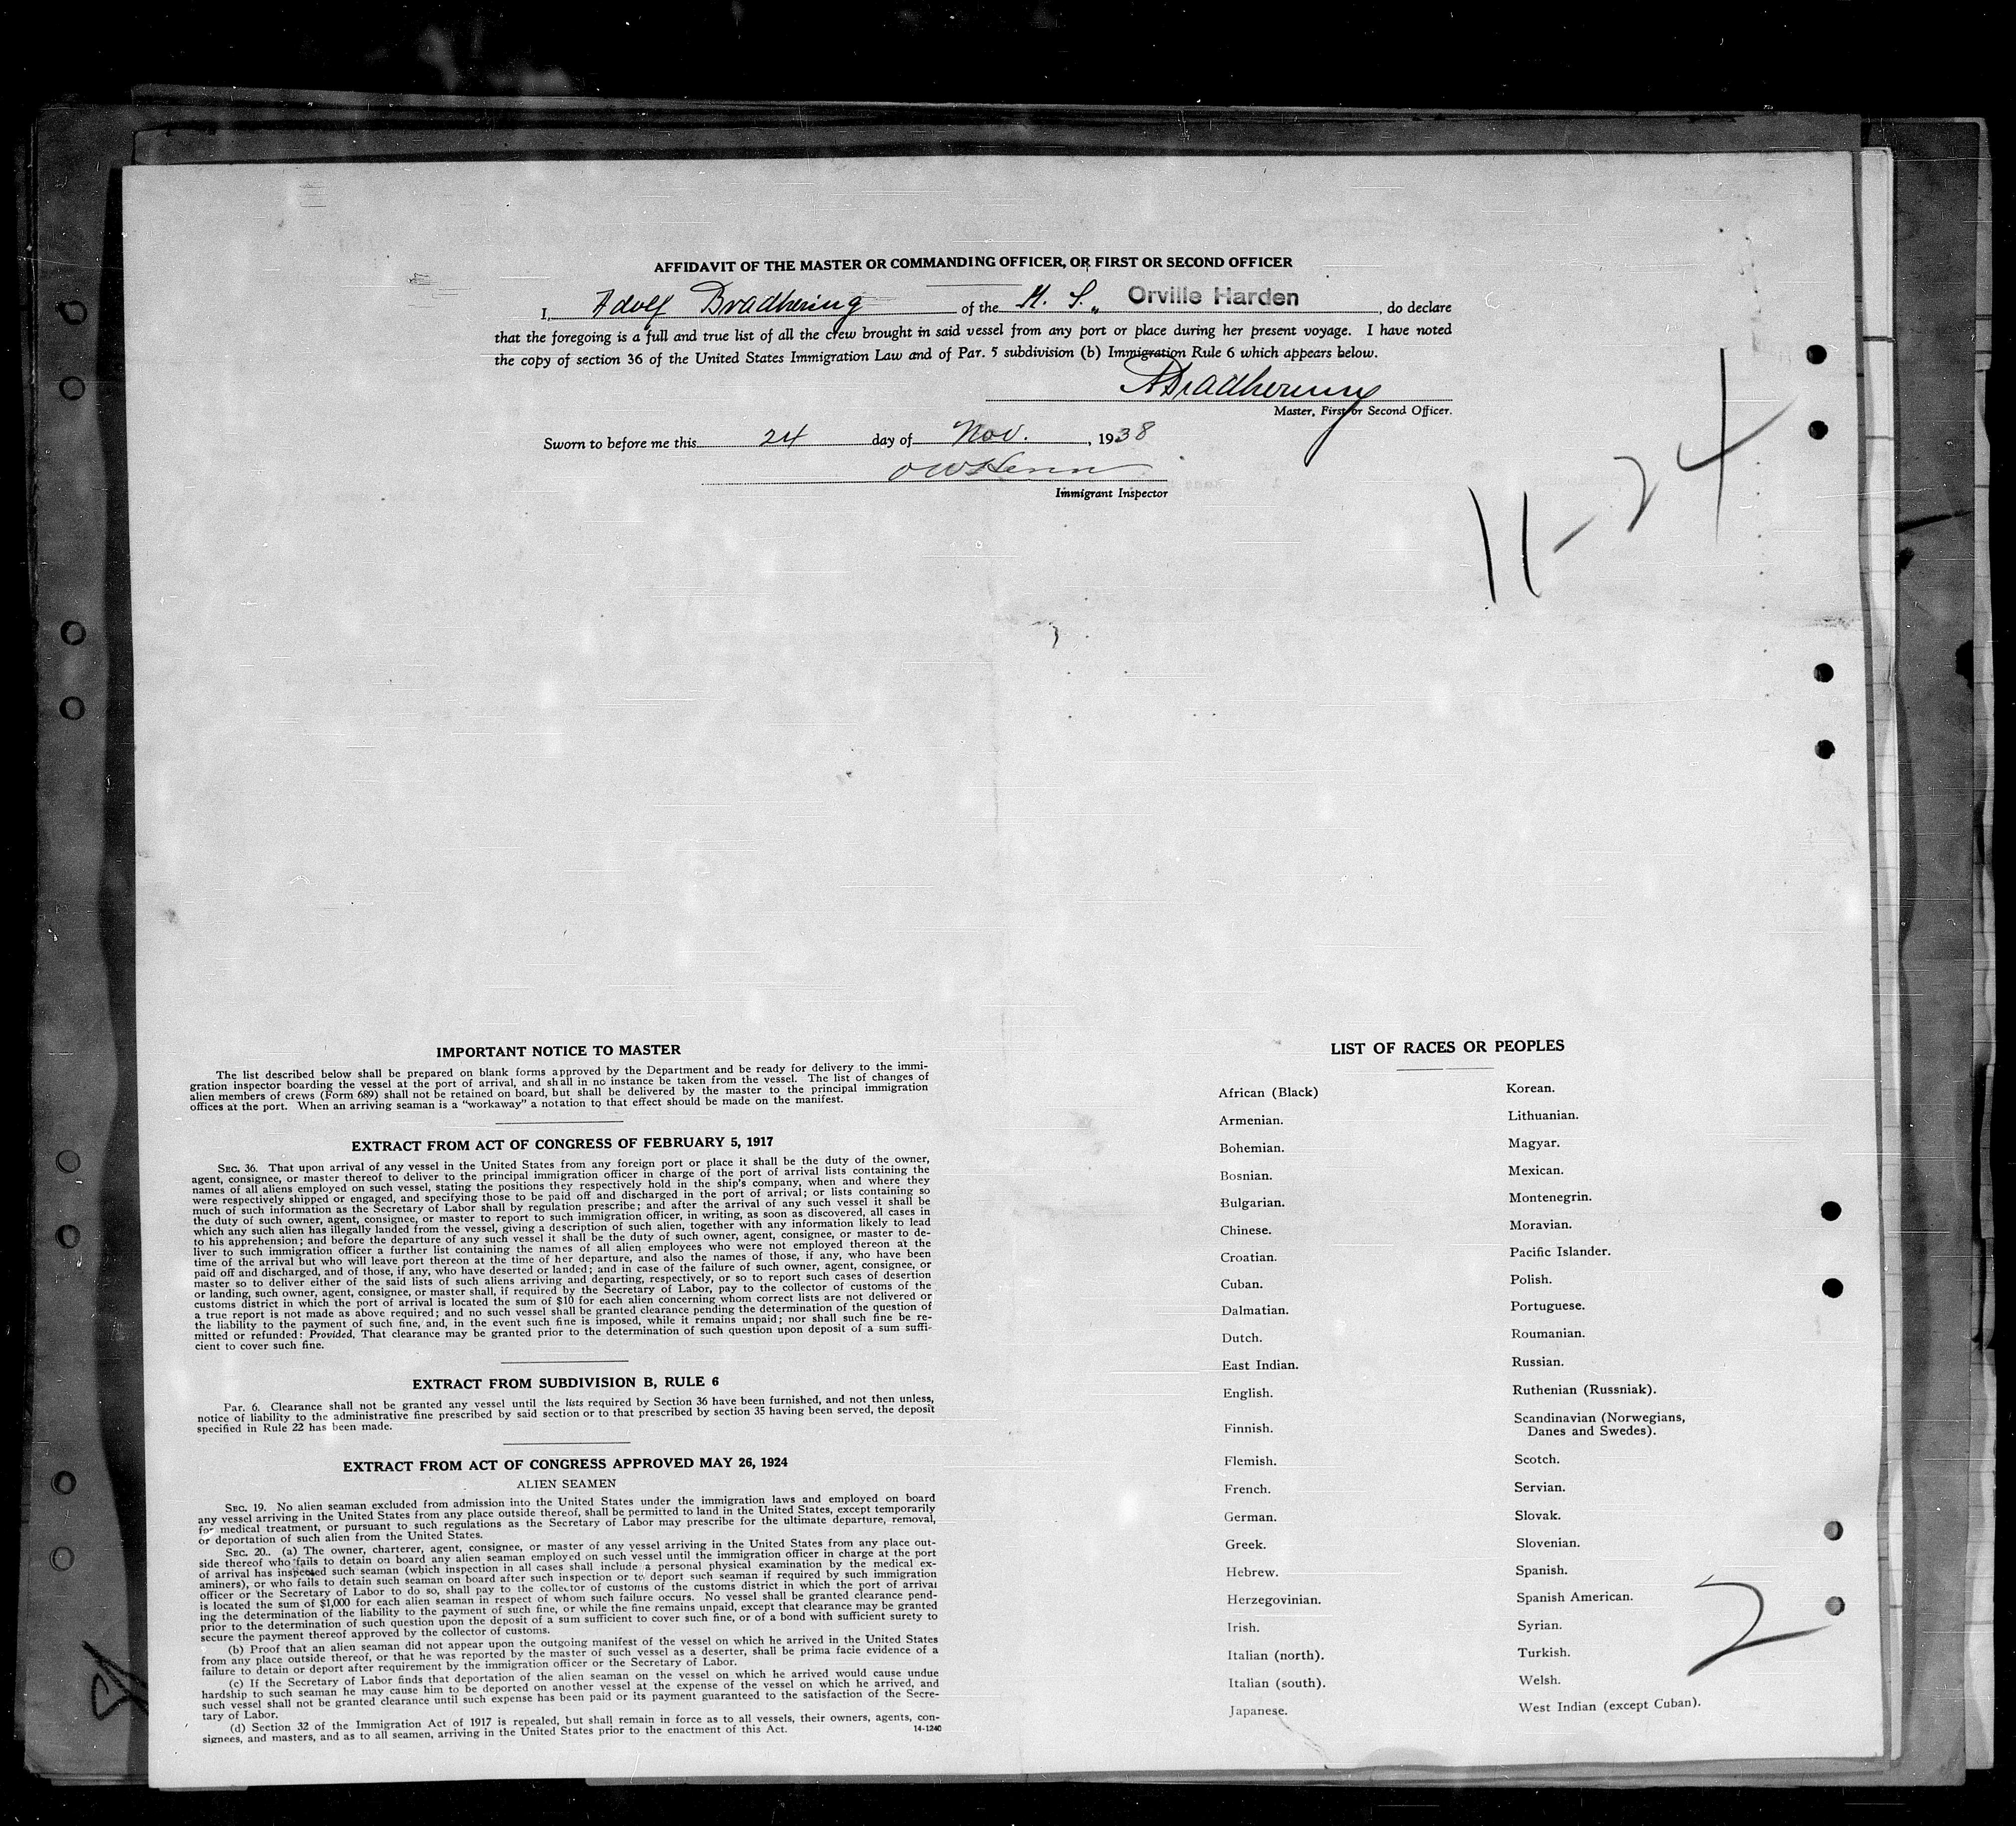 AFFIDAVIT OF THE MASTER OR COMMANDING OFFICER, OR FIRST OR SECOND OFFICER
I, Adolf Bradhering of the M. S. „ Orville Harden , do declare
that the foregoing is a full and true list of all the crew brought in said vessel from any port or place during her present voyage. I have noted
the copy of section 36 of the United States Immigration Law and of Par. 5 subdivision (b) Immigration Rule 6 which appears below.
ABradhering
Master, First or Second Officer.
Sworn to before me this 24 day of Nov. , 1938
Immigrant Inspector
11-24
IMPORTANT NOTICE TO MASTER
The list described below shall be prepared on blank forms approved by the Department and be ready for delivery to the immi-
gration inspector boarding the vessel at the port of arrival, and shall in no instance be taken from the vessel. The list of changes of
alien members of crews (Form 689) shall not be retained on board, but shall be delivered by the master to the principal immigration
offices at the port. When an arriving seaman is a "workaway" a notation to that effect should be made on the manifest.
EXTRACT FROM ACT OF CONGRESS OF FEBRUARY 5, 1917
SEC. 36. That upon arrival of any vessel in the United States from any foreign port or place it shall be the duty of the owner,
agent, consignee, or master thereof to deliver to the principal immigration officer in charge of the port of arrival lists containing the
names of all aliens employed on such vessel, stating the positions they respectively hold in the ship's company, when and where they
were respectively shipped or engaged, and specifying those to be paid off and discharged in the port of arrival; or lists containing so
much of such information as the Secretary of Labor shall by regulation prescribe; and after the arrival of any such vessel it shall be
the duty of such owner, agent, consignee, or master to report to such immigration officer, in writing, as soon as discovered, all cases in
which any such alien has illegally landed from the vessel, giving a description of such alien, together with any information likely to lead
to his apprehension; and before the departure of any such vessel it shall be the duty of such owner, agent, consignee, or master to de-
liver to such immigration officer a further list containing the names of all alien employees who were not employed thereon at the
time of the arrival but who will leave port thereon at the time of her departure, and also the names of those, if any, who have been
paid off and discharged, and of those, if any, who have deserted or landed; and in case of the failure of such owner, agent, consignee, or
master so to deliver either of the said lists of such aliens arriving and departing, respectively, or so to report such cases of desertion
or landing, such owner, agent, consignee, or master shall, if required by the Secretary of Labor, pay to the collector of customs of the
customs district in which the port of arrival is located the sum of $10 for each alien concerning whom correct lists are not delivered or
a true report is not made as above required; and no such vessel shall be granted clearance pending the determination of the question of
the liability to the payment of such fine, and, in the event such fine is imposed, while it remains unpaid; nor shall such fine be re-
mitted or refunded: Provided, That clearance may be granted prior to the determination of such question upon deposit of a sum suffi-
cient to cover such fine.
EXTRACT FROM SUBDIVISION B, RULE 6
Par. 6. Clearance shall not be granted any vessel until the lists required by Section 36 have been furnished, and not then unless,
notice of liability to the administrative fine prescribed by said section or to that prescribed by section 35 having been served, the deposit
specified in Rule 22 has been made.
EXTRACT FROM ACT OF CONGRESS APPROVED MAY 26, 1924
ALIEN SEAMEN
SEC. 19. No alien seaman excluded from admission into the United States under the immigration laws and employed on board
any vessel arriving in the United States from any place outside thereof, shall be permitted to land in the United States, except temporarily
for medical treatment, or pursuant to such regulations as the Secretary of Labor may prescribe for the ultimate departure, removal,
or deportation of such alien from the United States.
SEC. 20. (a) The owner, charterer, agent, consignee, or master of any vessel arriving in the United States from any place out-
side thereof who fails to detain on board any alien seaman employed on such vessel until the immigration officer in charge at the port
of arrival has inspected such seaman (which inspection in all cases shall include a personal physical examination by the medical ex-
aminers), or who fails to detain such seaman on board after such inspection or to deport such seaman if required by such immigration
officer or the Secretary of Labor to do so, shall pay to the collector of customs of the customs district in which the port of arrival
is located the sum of $1,000 for each alien seaman in respect of whom such failure occurs. No vessel shall be granted clearance pend-
ing the determination of the liability to the payment of such fine, or while the fine remains unpaid, except that clearance may be granted
prior to the determination of such question upon the deposit of a sum sufficient to cover such fine, or of a bond with sufficient surety to
secure the payment thereof approved by the collector of customs.
(b) Proof that an alien seaman did not appear upon the outgoing manifest of the vessel on which he arrived in the United States
from any place outside thereof, or that he was reported by the master of such vessel as a deserter, shall be prima facie evidence of a
failure to detain or deport after requirement by the immigration officer or the Secretary of Labor.
(c) If the Secretary of Labor finds that deportation of the alien seaman on the vessel on which he arrived would cause undue
hardship to such seaman he may cause him to be deported on another vessel at the expense of the vessel on which he arrived, and
such vessel shall not be granted clearance until such expense has been paid or its payment guaranteed to the satisfaction of the Secre-
tary of Labor.
(d) Section 32 of the Immigration Act of 1917 is repealed, but shall remain in force as to all vessels, their owners, agents, con-
signees, and masters, and as to all seamen, arriving in the United States prior to the enactment of this Act.
14-1240
LIST OF RACES OR PEOPLES
African (Black)
Armenian.
Bohemian.
Bosnian.
Bulgarian.
Chinese.
Croatian.
Cuban.
Dalmatian.
Dutch.
East Indian.
English.
Finnish.
Flemish.
French.
German.
Greek.
Hebrew.
Herzegovinian.
Irish.
Italian (north).
Italian (south).
Japanese.
Korean.
Lithuanian.
Magyar.
Mexican.
Montenegrin.
Moravian.
Pacific Islander.
Polish.
Portuguese.
Roumanian.
Russian.
Ruthenian (Russniak).
Scandinavian (Norwegians,
Danes and Swedes).
Scotch.
Servian.
Slovak.
Slovenian.
Spanish.
Spanish American.
Syrian.
Turkish.
Welsh.
West Indian (except Cuban).
2